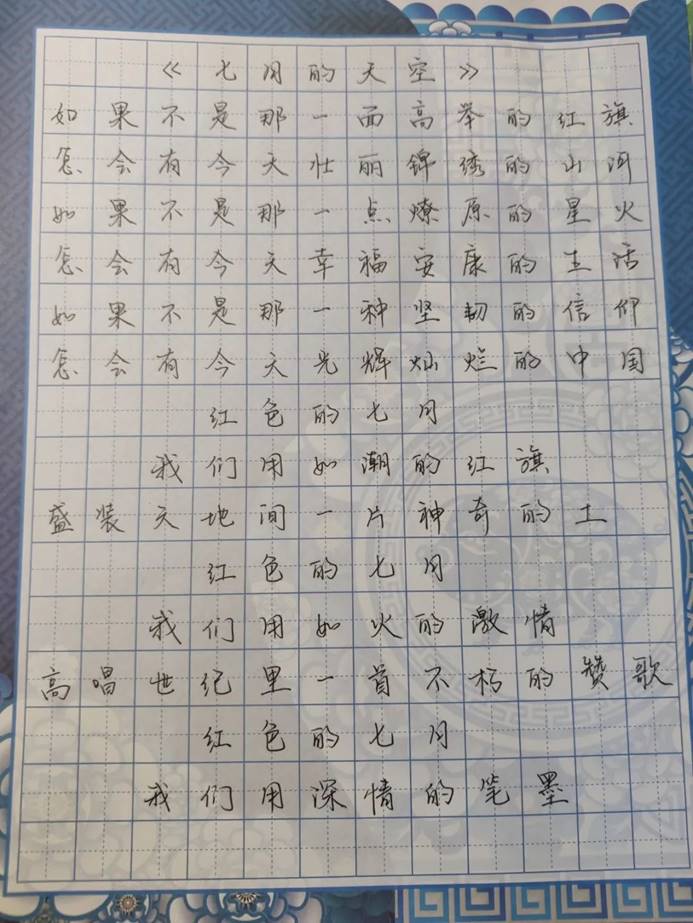 《七月的天空》
如果不是那一面高举的红旗
怎会有今天壮丽锦绣的山河
如果不是那一点燎原的星火
怎会有今天幸福安康的生活
如果不是那一种坚韧的信仰
怎会有今天光辉灿烂的中国
红色的七月
我们用如潮的红旗
盛装天地间一片神奇的土
红色的七月
我们用如火的激情
高唱世纪里一首不朽的赞歌
红色的七月
我们用深情的笔墨